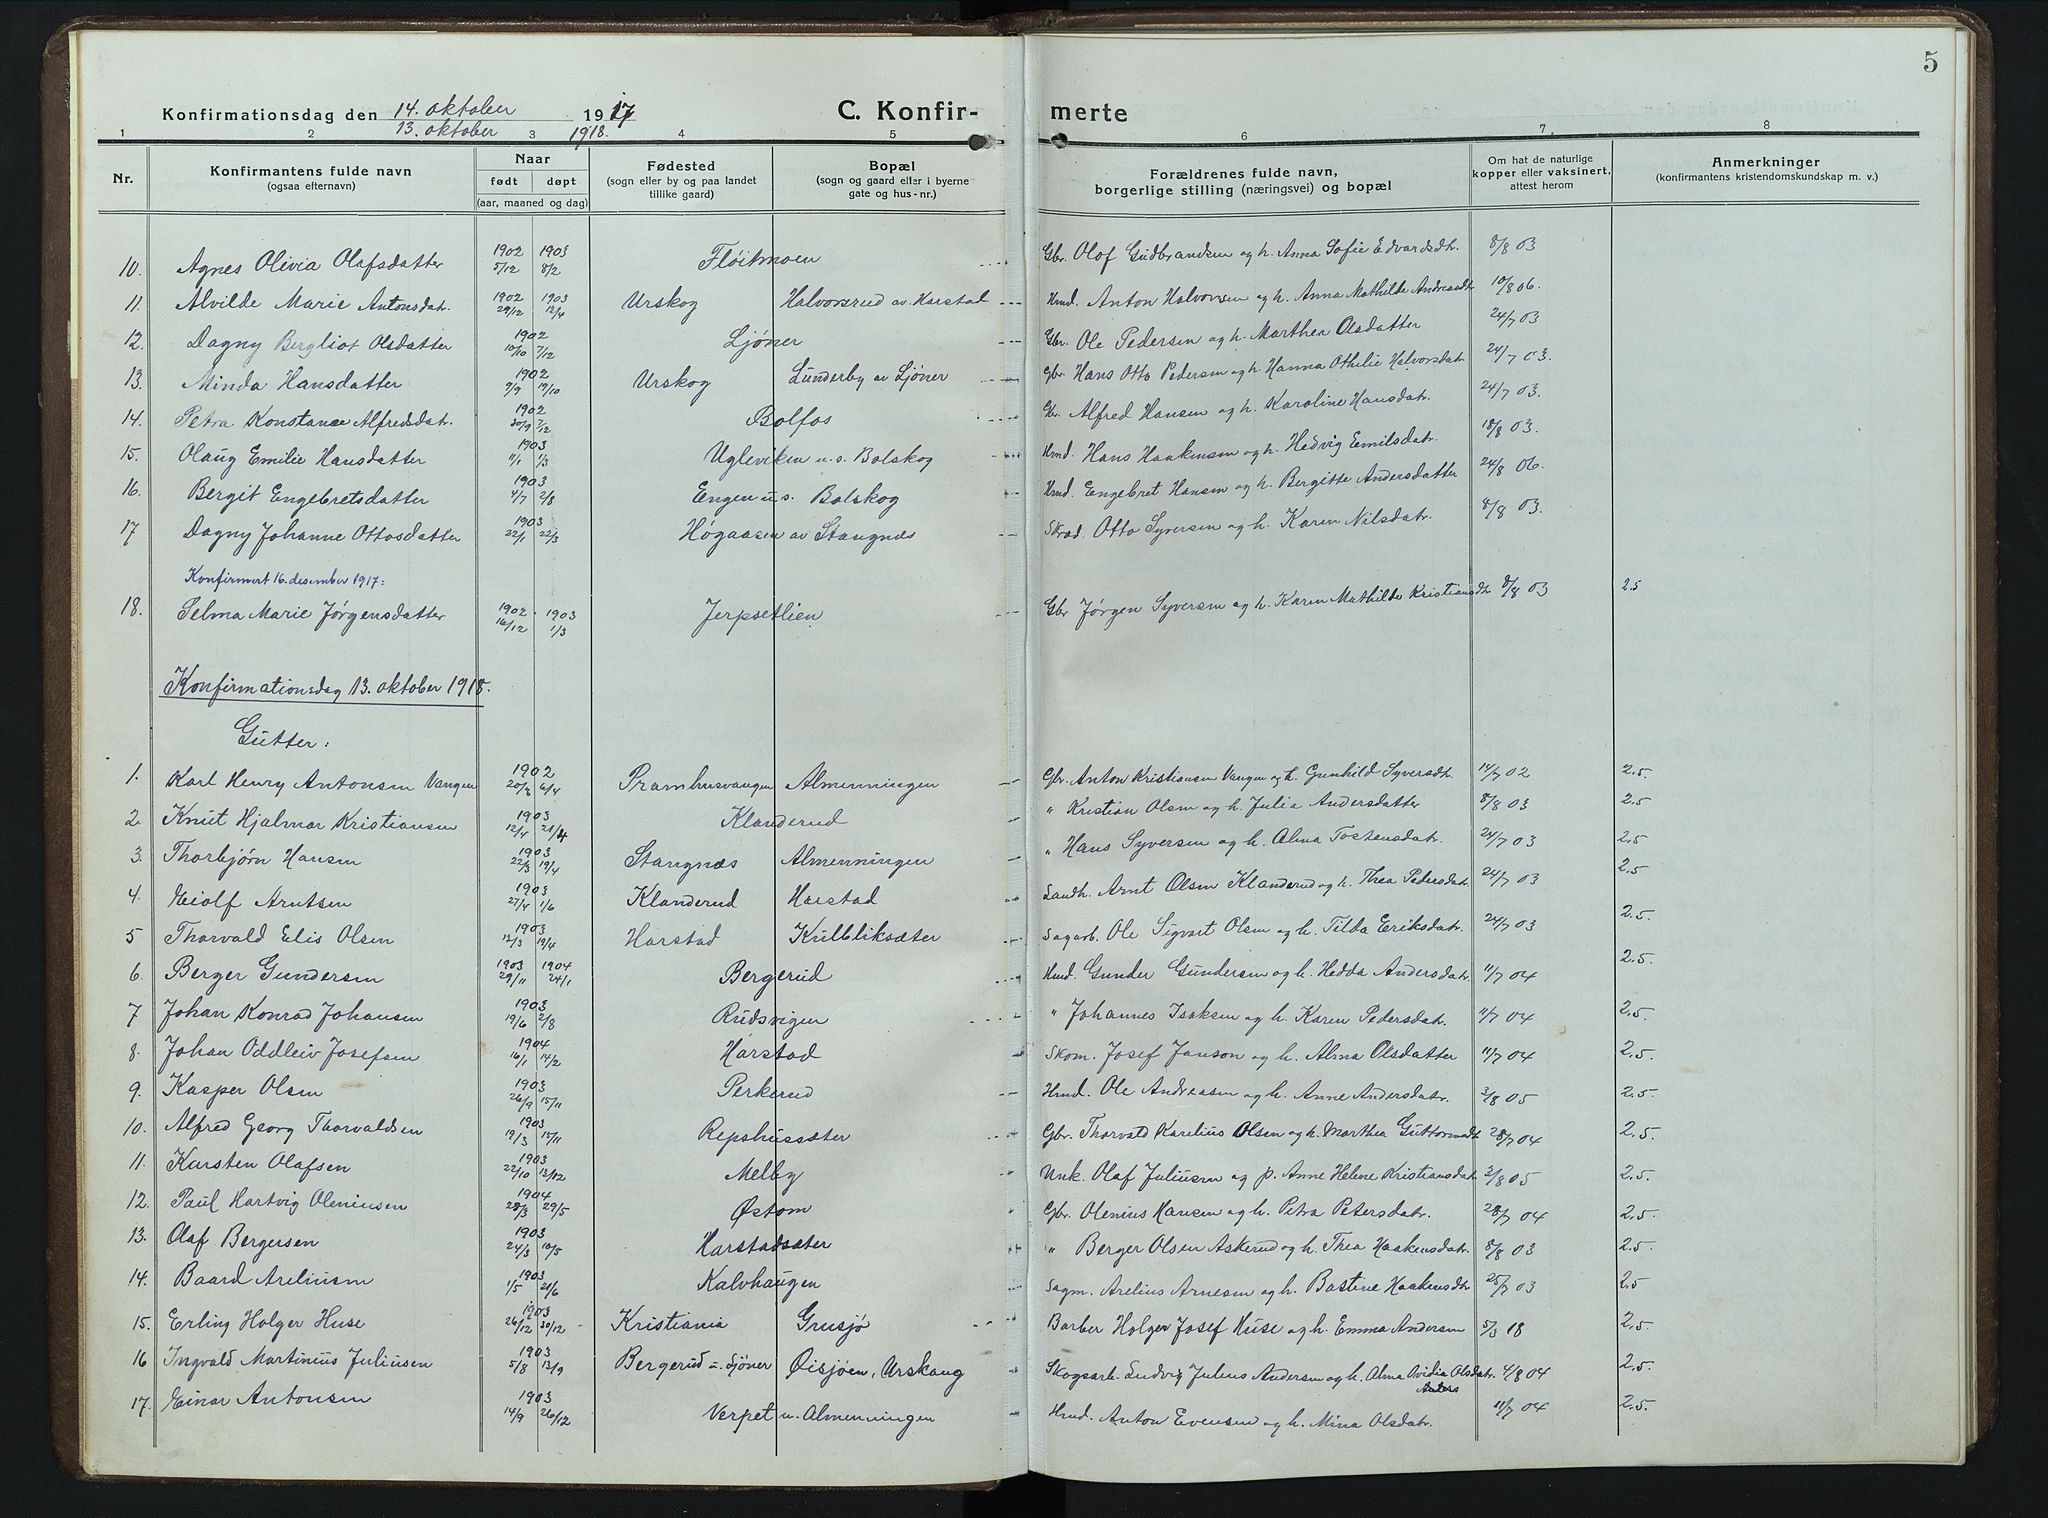 5
Konfirmationsdag den 14. oktober 1917 C. Konfirmerte
13. oktober 1918.
1 2 3 4 5 6 7 8
Nr. Konfirmantens fulde navn (ogsaa efternavn) Naar født døpt (aar, maaned og dag) Fødested (sogn eller by og paa landet tillike gaard) Bopæl (sogn og gaard eller i byerne gate og hus-nr.) Forældrenes fulde navn, borgerlige stilling (næringsvei) og bopæl Om hat de naturlige kopper eller vaksinert, attest herom Anmerkninger (konfirmantens kristendomskundskap m. v.)
10. Agnes Olivia Olafsdatter 1902 5/12 1903 8/2 Fløitmoen Gbr. Olof Gudbrandsen og h. Anna Sofie Edvardsdtr. 8/8 03
11. Alvilde Marie Antonsdatr. 1902 29/12 1903 12/4 Urskog Halvorsrud av Harstad Hmd. Anton Halvorsen og h. Anna Mathilde Andreasdtr 10/8 06.
12. Dagny Bergliot Olsdatter 1902 10/10 7/12 Ljøner Gbr. Ole Pedersen og h. Marthea Olsdatter 24/7 03
13. Minda Hansdatter 1902 9/9 19/10 Urskog Lunderby av Ljøner Gbr. Hans Otto Pedersen og h. Hanna Othilie Halvorsdatr. 24/7 03.
14. Petra Konstance Alfredsdatr. 1902 30/9 7/12 Bolfos Gbr. Alfred Hansen og h. Karoline Hansdatr. 24/7 03.
15. Olaug Emilie Hansdatter 1903 11/1 1/3 Ugleviken u. s. Bolskog Hmd. Hans Haakensen og h. Hedvig Emilsdatr. 18/8 03.
16. Bergit Engebretsdatter 1903 4/7 2/8 Engen u. s. Bolskog Hmd. Engebret Hansen og h. Bergitte Andersdatter 24/8 06.
17 Dagny Johanne Ottosdatter 1903 22/1 22/3 Høgaasen av Stangnæs Skræd. Otto Syversen og h. Karen Nilsdatr. 8/8 03.
Konfirmert 16. desember 1917:
18. Selma Marie Jørgensdatter 1902 16/12 1903 1/3 Jerpsetlien Gbr Jørgen Syversen og h. Karen Mathilde Kristiansdtr 8/8 03 2.5
Konfirmationsdag 13. oktober 1918.
Gutter:
1. Karl Henry Antonsen Vangen 1902 20/2 6/4 Pramhusvangen Almenningen Gbr. Anton Kristiansen Vangen og h. Gunhild Syversdtr. 14/7 02 2.5.
2. Knut Hjalmar Kristiansen 1903 12/4 21/4 Klanderud " Kristian Olsen og h. Julia Andersdatter 8/8 03 2.5
3. Thorbjørn Hansen 1903 22/3 19/4 Stangnæs Almenningen " Hans Syversen og h. Alma Tostensdatr. 24/7 03 2.5
4. Eiolf Arntsen 1903 27/4 1/6 Klanderud Harstad Landh. Arnt Olsen Klanderud og h. Thea Pedersdatr. 24/7 03 2.5
5 Thorvald Elis Olsen 1903 12/3 19/4 Harstad Kulbliksæter Sagarb. Ole Sigvart Olsen og h. Tilda Eriksdatr. 24/7 03 2.5.
6. Berger Gundersen 1903 29/11 1904 24/1 Bergerud Hmd. Gunder Gundersen og h. Hedda Andersdatr. 11/7 04 2.5.
7 Johan Konrad Johansen 1903 19/6 2/8 Rudsvigen " Johannes Isaksen og h. Karen Pedersdatr. 11/7 04 2.5.
8. Johan Oddleiv Josefsen 1904 16/1 14/2 Harstad Skom. Josef Janson og h. Alma Olsdatter 11/7 04 2.5.
9. Kasper Olsen 1903 26/9 15/11 Perkerud Hmd. Ole Andreasen og h. Anne Andersdatr. 3/8 05 2.5.
10. Alfred Georg Thorvaldsen 1903 19/3 15/11 Repshussæter Gbr. Thorvald Karelius Olsen og h. Marthea Guttormsdtr 28/7 04 2.5.
11. Karsten Olafsen 1903 22/10 13/12 Melby Unk. Olaf Juliussen og p. Anne Helene Kristiansdatr. 3/8 05 2.5.
12. Paul Hartvig Oleniusen 1904 28/3 29/5 Østom Gbr. Olenius Hansen og h. Petra Petersdatr. 28/7 04 2.5.
13. Olaf Bergersen 1903 24/3 10/5 Harstadsæter " Berger Olsen Askerud og h. Thea Haakensdatr. 8/8 03 2.5.
14. Baard Areliusen 1903 1/5 21/6 Kalvhaugen Sagm. Arelius Arnesen og h. Bastine Haakensdtr. 25/7 03 2.5
15. Erling Holger Huse 1903 26/12 30/12 Kristiania Grusjø Barber Holger Josef Huse og h. Emma Andersen 5/3 18 2.5.
16 Ingvald Martinius Juliusen 1903 5/8 13/9 Bergerud u. Ljøner Øisjøen, Urskaug Skogsarb. Ludvig Julius Andersen og h. Alma Ovidia Olsdatr. 4/8 04 2.5.
Anders
17. Einar Antonsen 1903 14/9 26/12 Verpet u. Almenningen Hmd. Anton Evensen og h. Mina Olsdatr. 11/7 04 2.5.